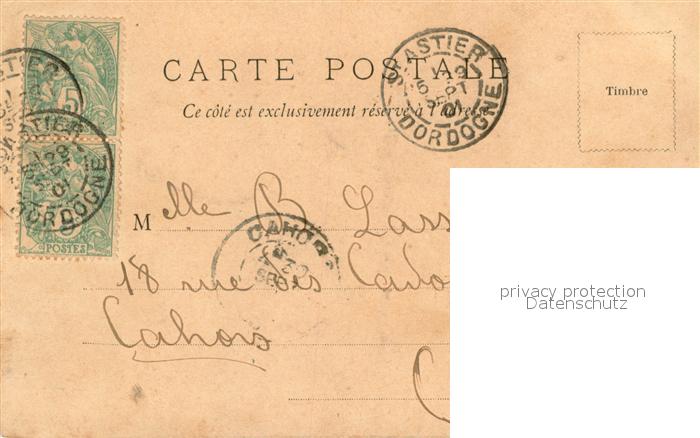 CARTE POSTALE
Ce côté est exclusivement réservé à l'adresse
Timbre
DORDOGNE
DORDOGNE
5
POSTES
Melle B Lass
CAHORS
18 rue des
Cahors
C
privacy protection
Datenschutz